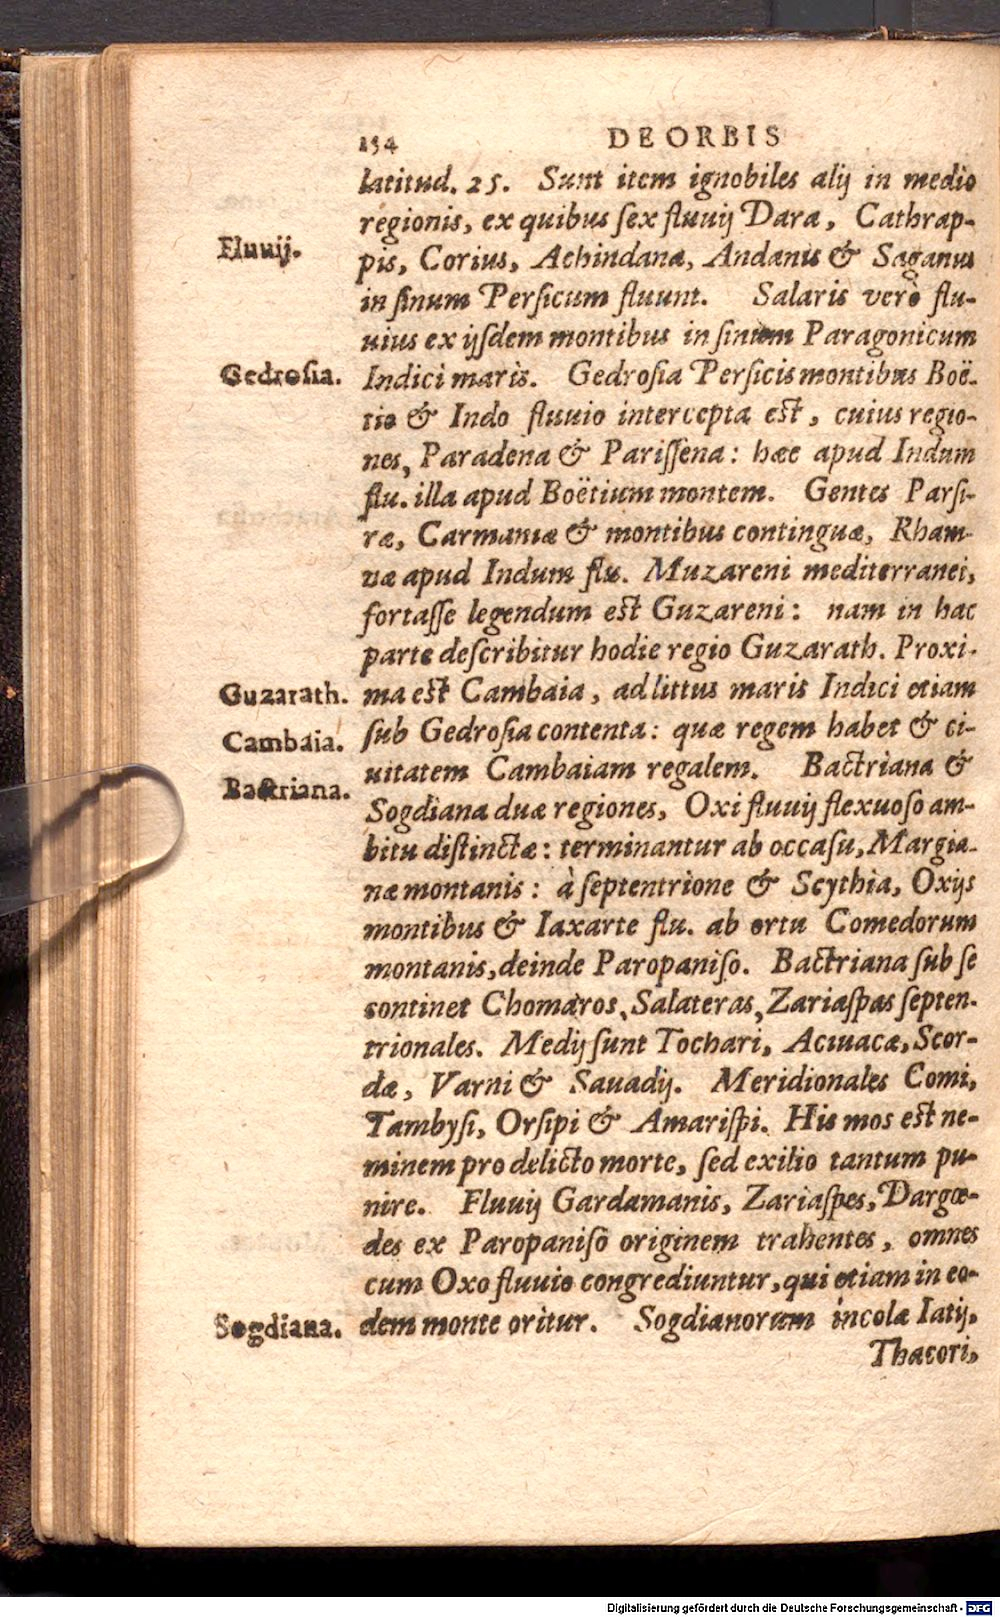 154 DE ORBIS
latitud. 25. Sunt item ignobiles alij in medio
regionis, ex quibus sex fluuij Dara, Cathrap-
Fluuij.
pis, Corius, Achindana, Andanis & Saganus
in sinum Persicum fluunt. Salaris verò flu-
uius ex ijsdem montibus in sinum Paragonicum
Gedrosia.
Indici maris. Gedrosia Persicis montibus Boë-
tio & Indo fluuio intercepta est, cuius regio-
nes, Paradena & Parissena: hæc apud Indum
flu. illa apud Boëtium montem. Gentes Parsi-
ræ, Carmaniæ & montibus contiguæ, Rham-
næ apud Indum flu. Muzareni mediterranei,
fortasse legendum est Guzareni: nam in hac
parte describitur hodie regio Guzarath. Proxi-
Guzarath.
ma est Cambaia, ad littus maris Indici etiam
Cambaia.
sub Gedrosia contenta: quæ regem habet & ci-
uitatem Cambaiam regalem. Bactriana &
Bactriana.
Sogdiana duæ regiones, Oxi fluuij flexuoso am-
bitu distinctæ: terminantur ab occasu, Margia-
næ montanis: à septentrione & Scythia, Oxijs
montibus & Iaxarte flu. ab ortu Comedorum
montanis, deinde Paropaniso. Bactriana sub se
continet Chomaros, Salateras, Zariaspas septen-
trionales. Medij sunt Tochari, Aciuacæ, Scor-
dæ, Varni & Sauadij. Meridionales Comi,
Tambysi, Orsipi & Amarispi. His mos est ne-
minem pro delicto morte, sed exilio tantum pu-
nire. Fluuij Gardamanis, Zariaspes, Dargœ-
des ex Paropaniso originem trahentes, omnes
cum Oxo fluuio congrediuntur, qui etiam in eo-
Sogdiana.
dem monte oritur. Sogdianorum incolæ Iatij,
Thacori,
Digitalisierung gefördert durch die Deutsche Forschungsgemeinschaft - DFG